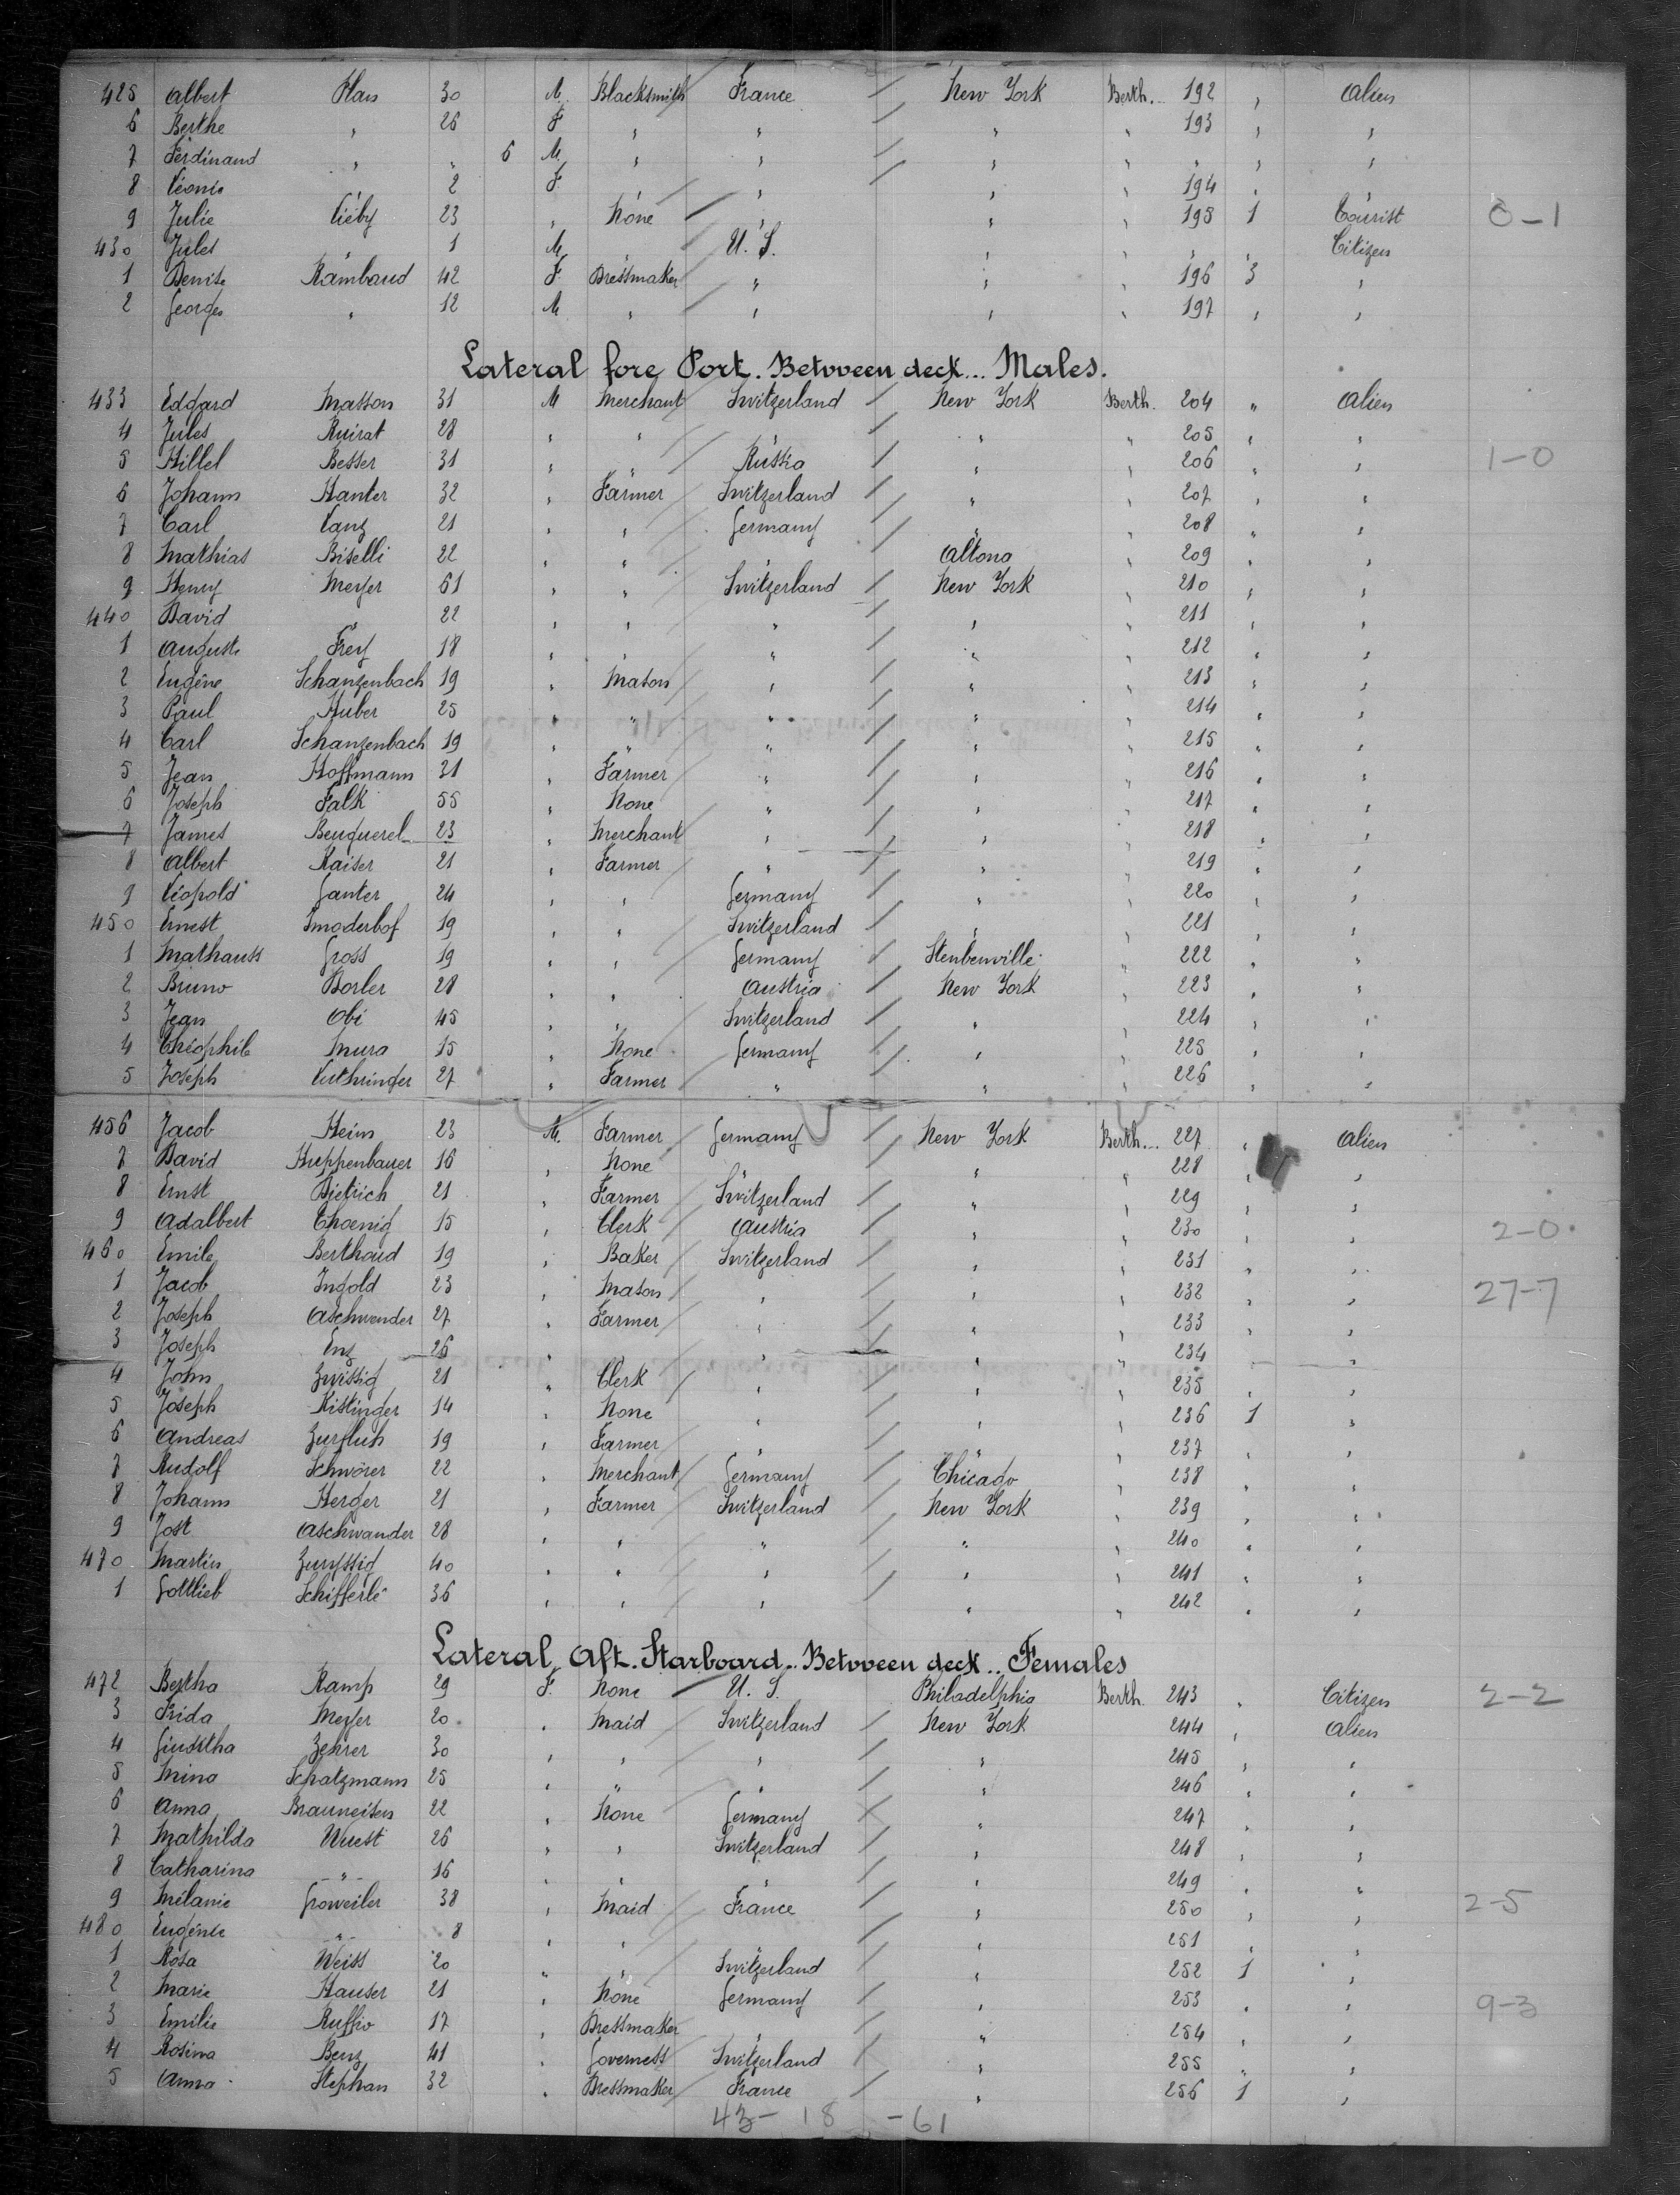 425 Albert Hans 30 M. Blacksmith France / New York Berth... 192 " Alien
6 Berthe " 26 F " " " " 193 " "
7 Ferdinand " " 6 M. " " / " " " " "
8 Léonie 2 F. / " / " " 194 " "
9 Julie Lieby 23 " None / " " " 195 1 Tourist 0-1
430 Jules " 1 M. U. S. " " " " Citizen
1 Denise Rambaud 42 F. Dressmaker " " " 196 3 "
2 Georges " 12 M " / " " " 197 " "
Lateral fore Port. Betvveen deck... Males.
433 Edgard Masson 31 M Merchant Switzerland / New York Berth. 204 " Alien
4 Jules Ruirat 28 " " " / " " 205 " "
5 Hillel Besser 31 " " Russia / " " 206 " " 1-0
6 Johann Hanter 32 " Farmer Switzerland / " " 207 " "
7 Carl Lanz 21 " " Germany / " " 208 " "
8 Mathias Biselli 22 " " " Altona " 209 " "
9 Henry Meyer 61 " " Switzerland / New York " 210 " "
440 David " 22 " " " / " " 211 " "
1 Auguste Frey 18 " " " / " " 212 " "
2 Eugène Schanzenbach 19 " Mason " / " " 213 " "
3 Paul Huber 25 " " " / " " 214 " "
4 Carl Schanzenbach 19 " " " / " " 215 " "
5 Jean Hoffmann 31 " Farmer " / " " 216 " "
6 Joseph Falk 55 " None " / " " 217 " "
7 James Beuquerel 23 " Merchant " / " " 218 " "
8 Albert Kaiser 21 " Farmer " / " " 219 " "
9 Léopold Ganter 24 " " Germany / " " 220 " "
450 Ernest Imoderbof 19 " " Switzerland / " " 221 " "
1 Mathauss Gross 19 " " Germany / Steubenville " 222 " "
2 Bruno Borler 28 " " Austria / New York " 223 " "
3 Jean Obi 45 " " Switzerland / " " 224 " "
4 Théophile Mura 15 " None Germany / " " 225 " "
5 Joseph Luthringer 27 " Farmer " / " " 226 " "
456 Jacob Heim 23 M. Farmer Germany / New York Berth... 227 " Alien
7 David Huppenbauer 16 " None " / " " 228 " "
8 Ernst Dietrich 21 " Farmer Switzerland / " " 229 " "
9 Adalbert Thoenig 15 " Clerk Austria / " " 230 " " 2-0
460 Emile Berthoud 19 " Baker Switzerland / " " 231 " "
1 Jacob Ingold 23 " Mason " / " " 232 " " 27-7
2 Joseph Aschwender 27 " Farmer " / " " 233 " "
3 Joseph Enz 26 " " " / " " 234 "
4 John Zwissig 21 " Clerk " / " " 235 " "
5 Joseph Kistinger 14 " None " / " " 236 1 "
6 Andreas Zurfluh 19 " Farmer " / " " 237 " "
7 Rudolf Schwörer 22 " Merchant Germany / Chicago " 238 " "
8 Johann Herger 21 " Farmer Switzerland / New York " 239 " "
9 Jost Aschwander 28 " " " / " " 240 " "
470 Martin Zurfssig 40 " " " / " " 241 " "
1 Gottlieb Schifferlé 36 " " " / " " 242 " "
Lateral Aft. Starboard.. Betvveen deck.. Females
472 Bertha Kamp 29 F. None U. S. Philadelphia Berth. 243 " Citizen 2-2
3 Frida Meyer 20 " Maid Switzerland / New York 244 " Alien
4 Zehrer 30 " " " / " 245 " "
5 Mina Schatzmann 25 " " " / " 246 " "
6 Anna Brauneisen 22 " None Germany / " 247 " "
7 Mathilda Wuest 26 " " Switzerland / " 248 " "
8 Catharina " 16 " " " / " 249 " "
9 Mélanie Groweiler 38 " Maid France / " 250 " " 2-5
480 Eugénie " 8 " " " / " 251 " "
1 Rosa Weiss 20 " " Switzerland / " 252 1 "
2 Marie Hauser 21 " None Germany / " 253 " " 9-3
3 Emilie Ruffio 17 " Dressmaker " / " 254 " "
4 Rosina Benz 41 " Governess Switzerland / " 255 " "
5 Anna Stephan 32 " Dressmaker France / " 256 1 "
43- 18 -61